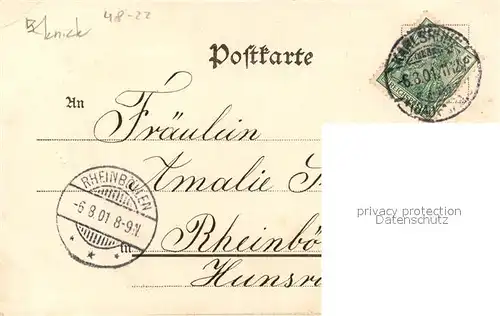 48-22
knick
Postkarte
KARLSRUHE
6.3.01.11-12
(BADEN)
An
Fräulein
Amalie
RHEINBÖLLEN
-6 8 01 8-9 N
privacy protection
Datenschutz
in
Rheinbö
Hunsr